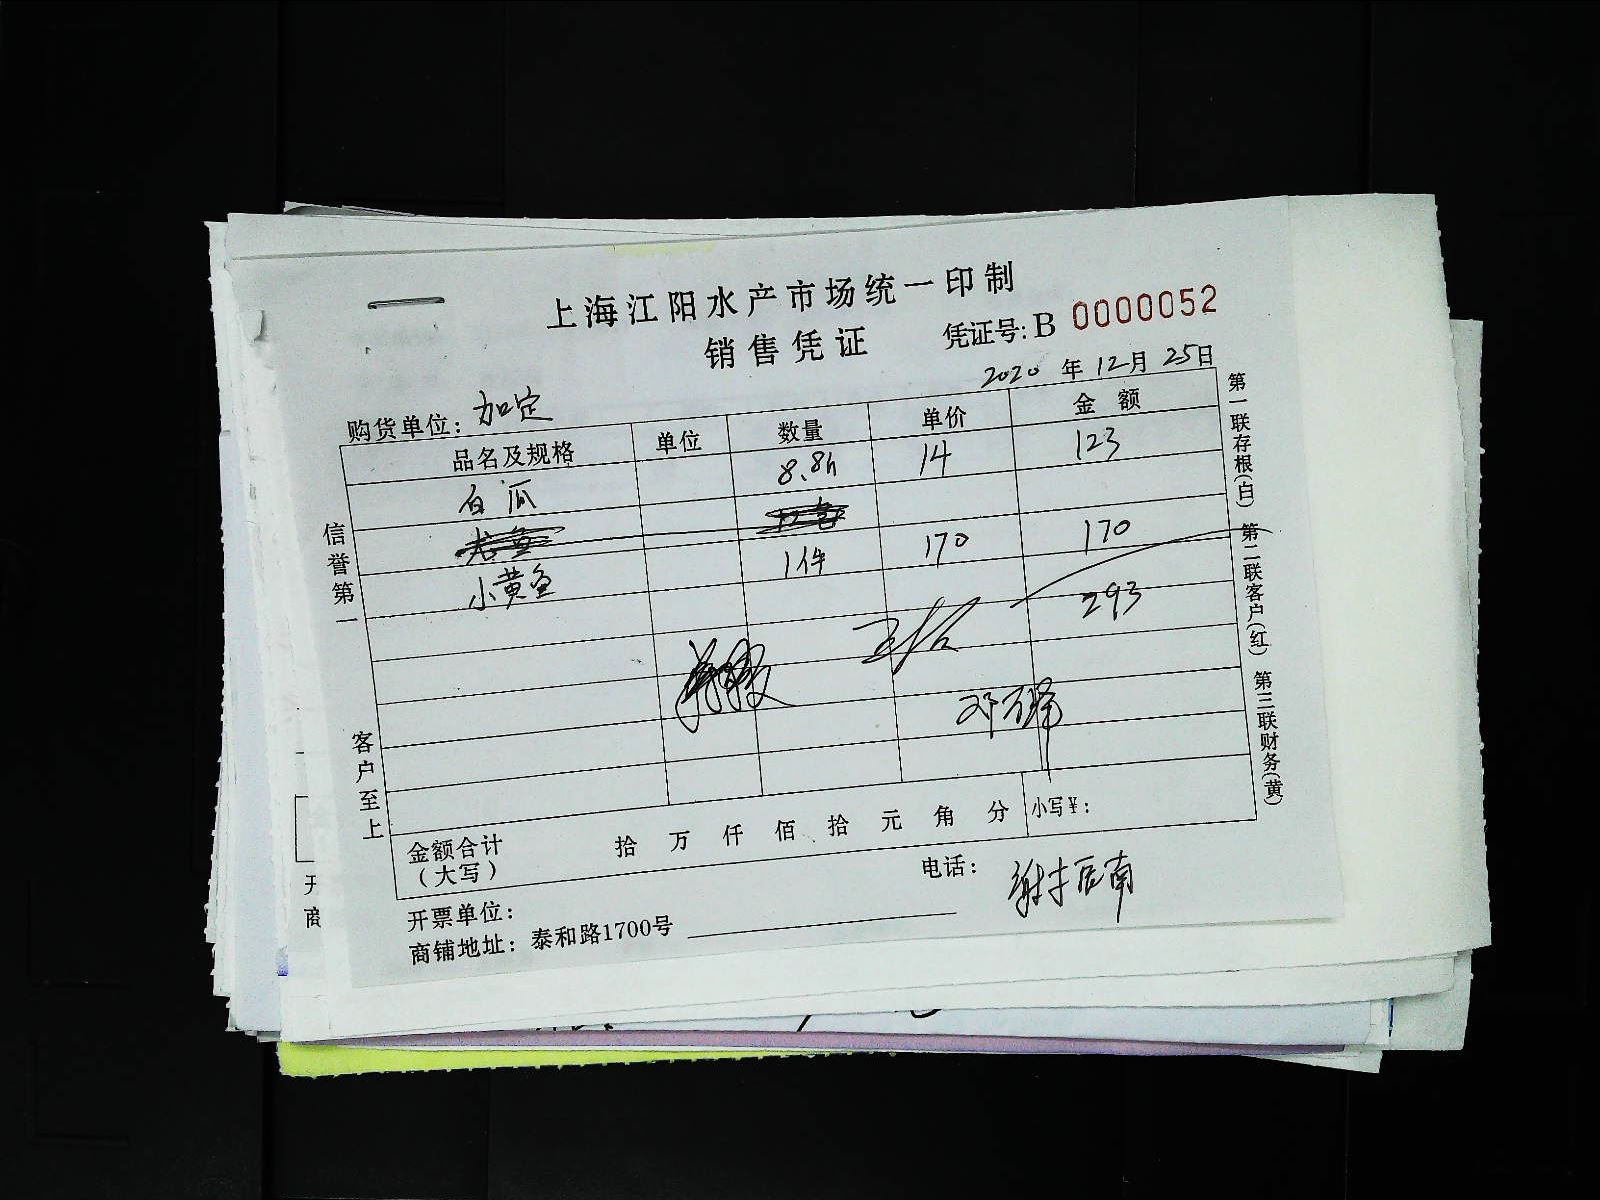 上海江阳水产市场统一印制
销售凭证 凭证号:B 0000052
2020 年 12月 25日
购货单位: 加定
品名及规格 单位 数量 单价 金额
白瓜 8.8斤 14 123
小黄鱼 1件 170 170
293
金额合计 拾 万 仟 佰 拾 元 角 分 小写¥:
(大写)
开票单位: 电话:
商铺地址: 泰和路1700号
信誉第一
客户至上
第一联存根(白) 第二联客户(红) 第三联财务(黄)
开
商